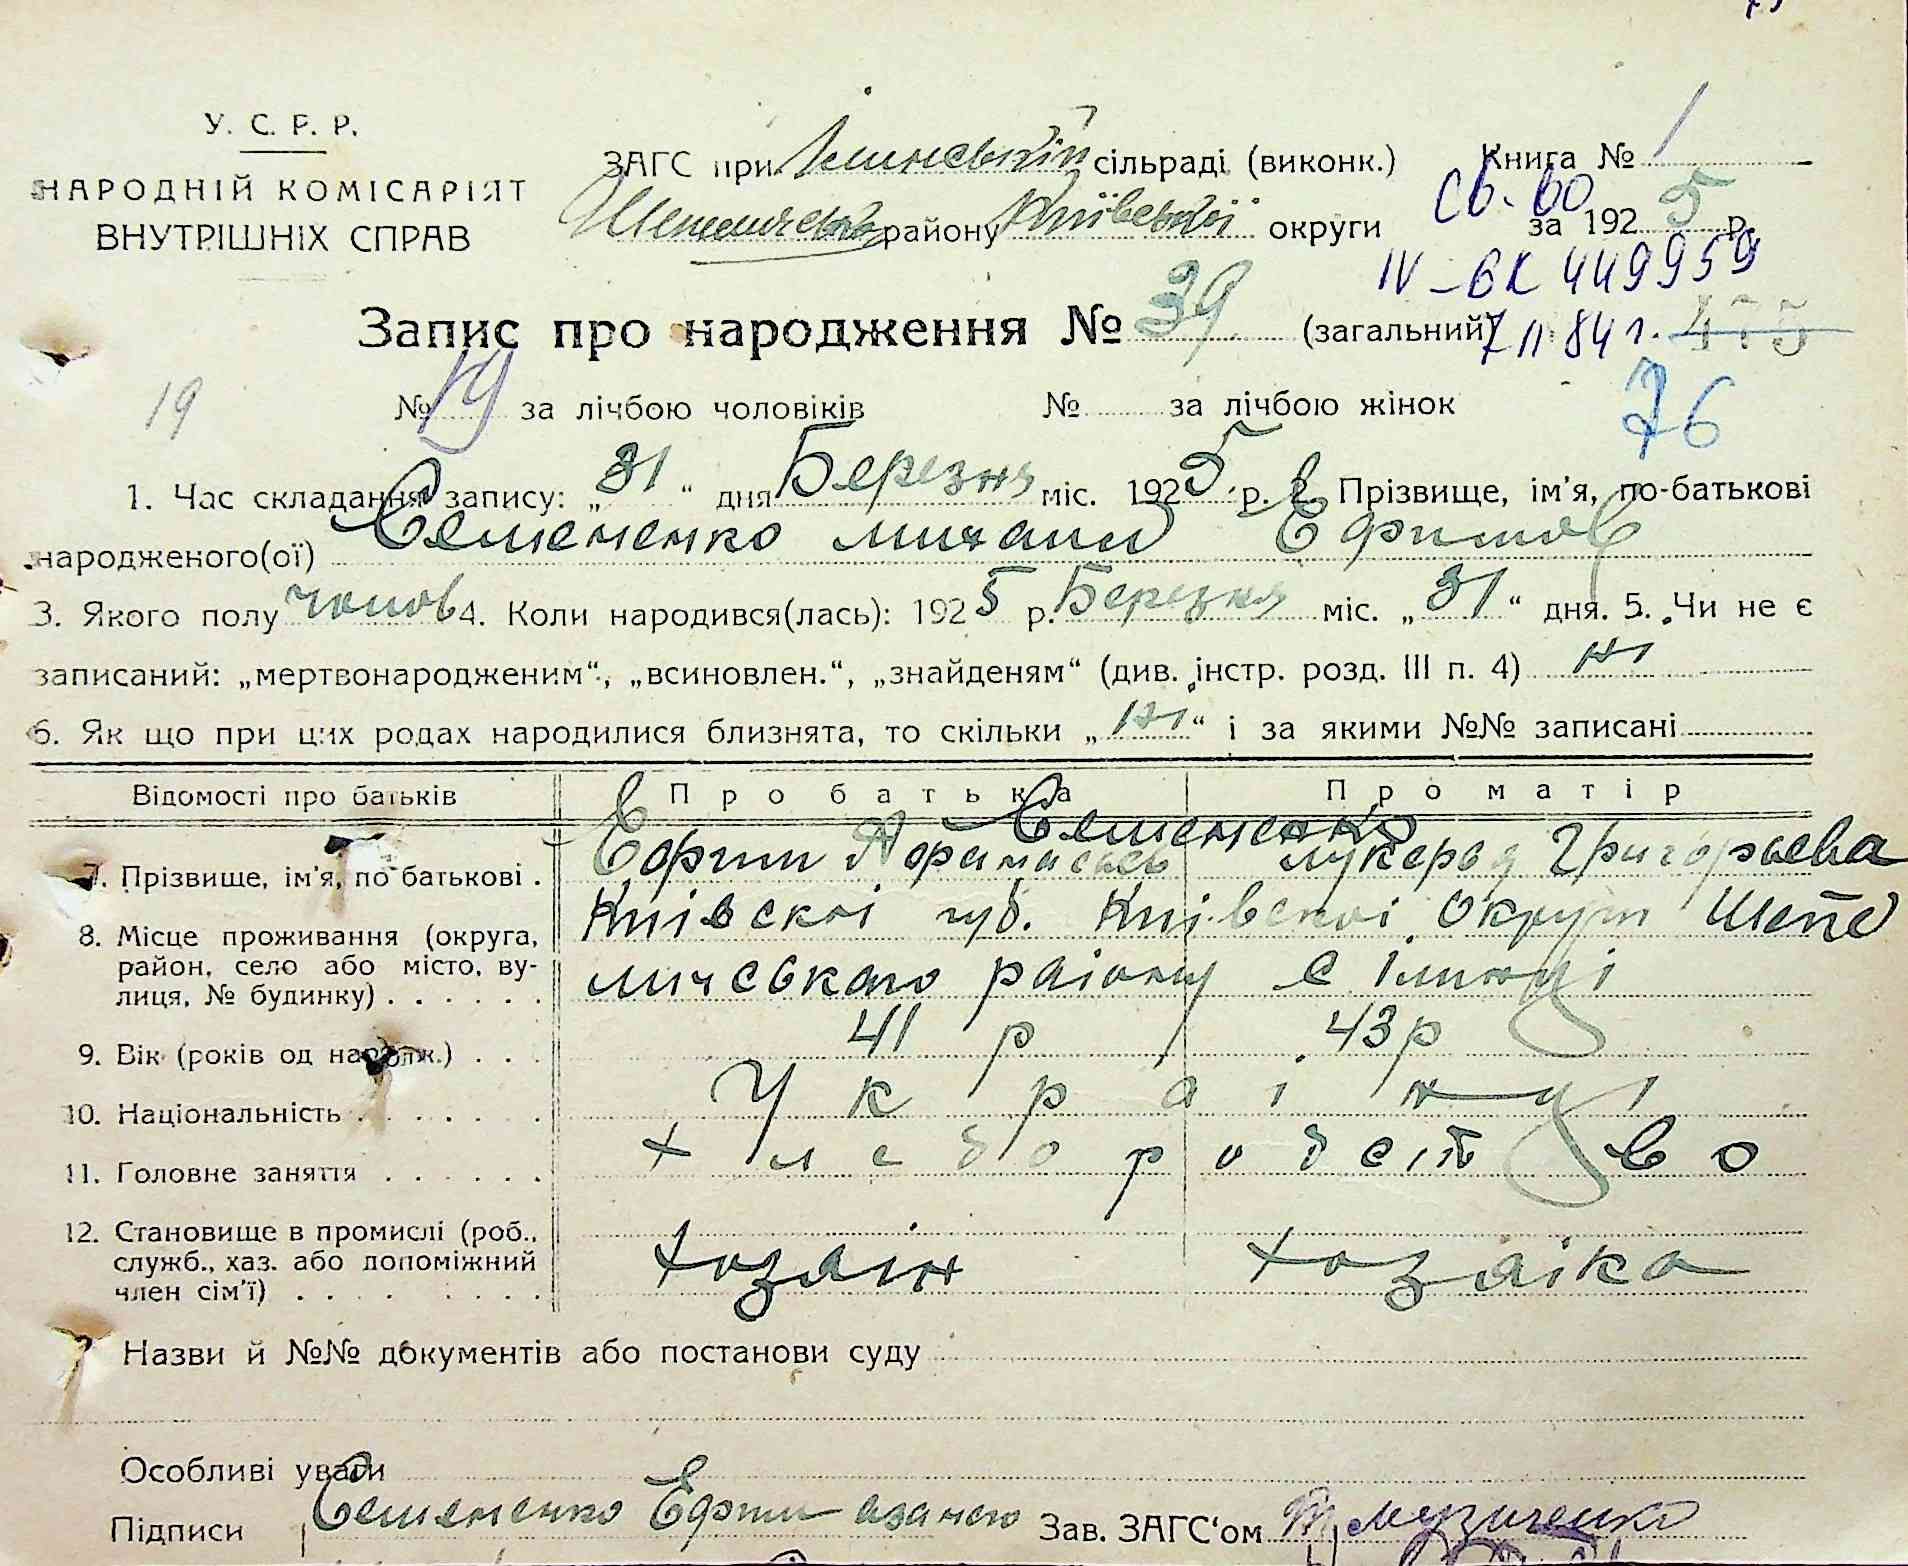 У. С. Р. Р.
НАРОДНІЙ КОМІСАРІЯТ
ВНУТРІШНІХ СПРАВ
ЗАГС при Ілинській сільраді (виконк.) Книга № 1
Шепелическ району Київської округи за 1925 р.
Св. во
IV–БК 449959
7 II 84 г.
Запис про народження № 39 (загальний) 475
19 № 19 за лічбою чоловіків № за лічбою жінок 76
1. Час складання запису: „31“ дня Березня міс. 1925 р. 2. Прізвище, ім'я, по-батькові
народженого(ої) Семененко Михаил Ефимов
3. Якого полу чолов 4. Коли народився(лась): 1925 р. Березня міс. „31“ дня. 5. Чи не є
записаний: „мертвонародженим“, „всиновлен.“, „знайденям“ (див. інстр. розд. III п. 4) ні
6. Як що при цих родах народилися близнята, то скільки „ні“ і за якими №№ записані
Відомості про батьків Про батька Про матір
Семененко
7. Прізвище, ім'я, по батькові . Ефим Афанасьев Лукерья Григорьева
8. Місце проживання (округа, район, село або місто, вулиця, № будинку) . . . . . . Київскоі губ. Київскоі Округи Шепе
личського раіону с Ілинці
9. Вік (років од народж.) . . . 41 р 43 р
10. Національність . . . . . . Украінці
11. Головне заняття . . . . . . хлеборобство
12. Становище в промислі (роб., служб., хаз. або допоміжний член сім'ї) . . . . . . . . хозяін хозяіка
Назви й №№ документів або постанови суду
Особливі уваги
Підписи Семененко Ефим Зав. ЗАГС'ом Музиченко